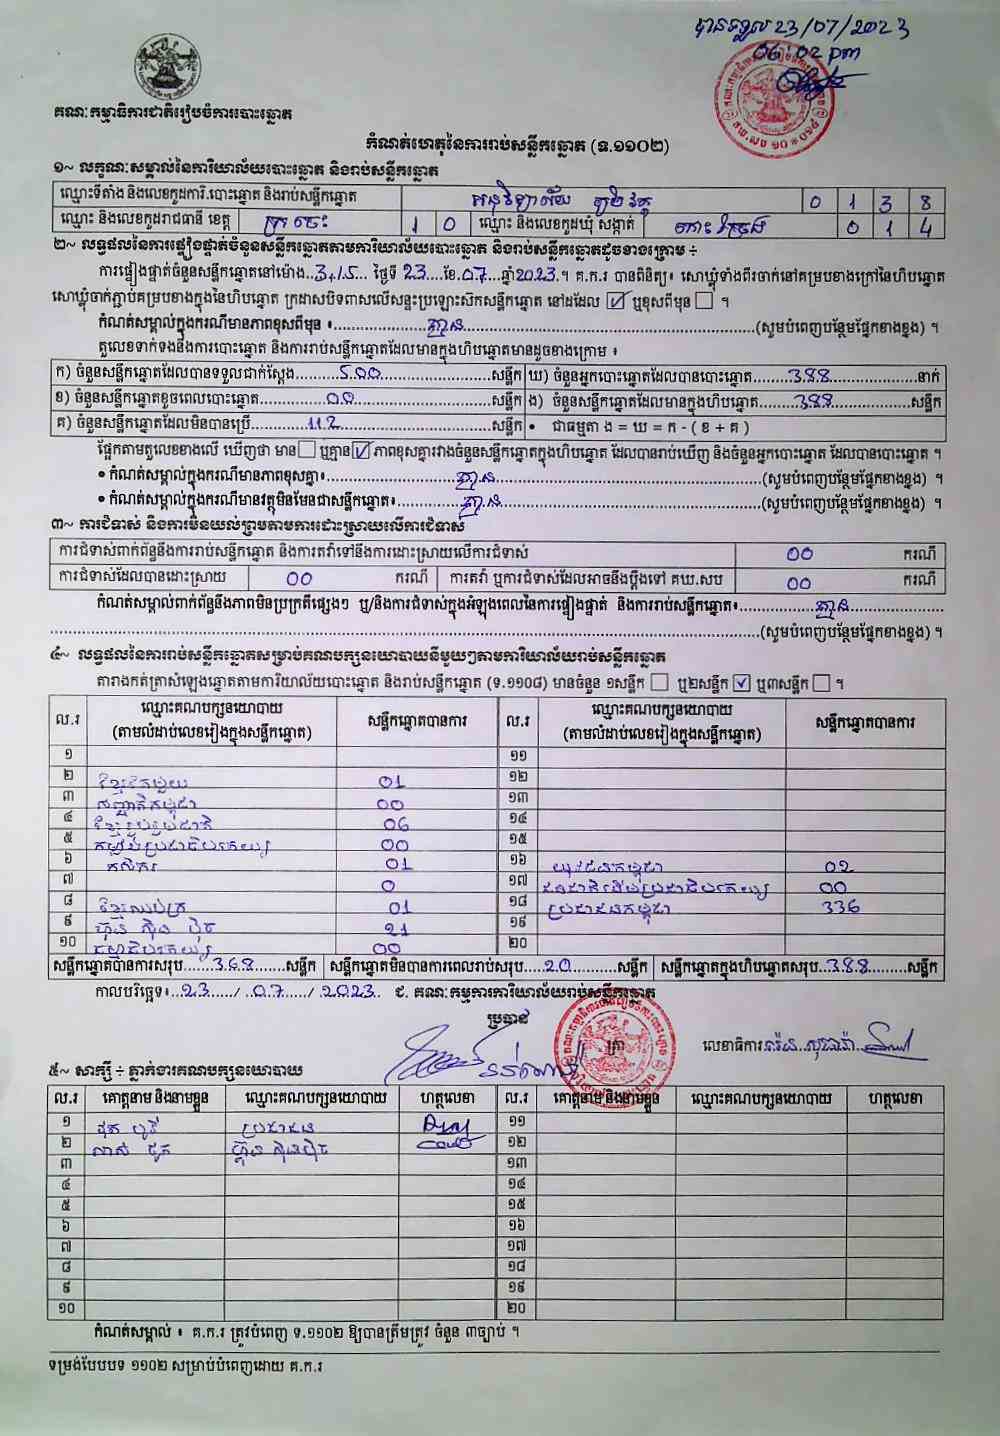 បានទទួល 23/07/2023
06:02 pm
គណៈកម្មាធិការជាតិរៀបចំការបោះឆ្នោត
កំណត់ហេតុនៃការរាប់សន្លឹកឆ្នោត (ទ.១១០២)
១~ លក្ខណៈសម្គាល់នៃការិយាល័យបោះឆ្នោត និងរាប់សន្លឹកឆ្នោត
ឈ្មោះទីតាំង និងលេខកូដការិ.បោះឆ្នោត និងរាប់សន្លឹកឆ្នោត អនុវិទ្យាល័យ 0 1 3 8
ឈ្មោះ និងលេខកូដរាជធានី ខេត្ត ក្រចេះ 1 0 ឈ្មោះ និងលេខកូដឃុំ សង្កាត់ កោះទ្រង់ 0 1 4
២~ លទ្ធផលនៃការផ្ទៀងផ្ទាត់ចំនួនសន្លឹកឆ្នោតតាមការិយាល័យបោះឆ្នោត និងរាប់សន្លឹកឆ្នោតដូចខាងក្រោម ÷
ការផ្ទៀងផ្ទាត់ចំនួនសន្លឹកឆ្នោតនៅម៉ោង..3:15..ថ្ងៃទី 23...ខែ.07..ឆ្នាំ2023.។ គ.ក.រ បានពិនិត្យ៖ សោឃ្លុំទាំងពីរចាក់នៅគម្របខាងក្រៅនៃហិបឆ្នោត
សោឃ្លុំចាក់ភ្ជាប់គម្របខាងក្នុងនៃហិបឆ្នោត ក្រដាសបិទពាសលើសន្ទះប្រឡោះស៊កសន្លឹកឆ្នោត នៅដដែល ☑ ឬខុសពីមុន ☐ ។
កំណត់សម្គាល់ក្នុងករណីមានភាពខុសពីមុន ៖...គ្មាន...(សូមបំពេញបន្ថែមផ្នែកខាងខ្នង) ។
តួលេខទាក់ទងនឹងការបោះឆ្នោត និងការរាប់សន្លឹកឆ្នោតដែលមានក្នុងហិបឆ្នោតមានដូចខាងក្រោម ៖
ក) ចំនួនសន្លឹកឆ្នោតដែលបានទទួលជាក់ស្តែង...500...សន្លឹក ឃ) ចំនួនអ្នកបោះឆ្នោតដែលបានបោះឆ្នោត...388...នាក់
ខ) ចំនួនសន្លឹកឆ្នោតខូចពេលបោះឆ្នោត...00...សន្លឹក ង) ចំនួនសន្លឹកឆ្នោតដែលមានក្នុងហិបឆ្នោត...388...សន្លឹក
គ) ចំនួនសន្លឹកឆ្នោតដែលមិនបានប្រើ...112...សន្លឹក • ជាធម្មតា ង = ឃ = ក - ( ខ + គ )
ផ្អែកតាមតួលេខខាងលើ ឃើញថា មាន ☐ ឬគ្មាន ☑ ភាពខុសគ្នារវាងចំនួនសន្លឹកឆ្នោតក្នុងហិបឆ្នោត ដែលបានរាប់ឃើញ និងចំនួនអ្នកបោះឆ្នោត ដែលបានបោះឆ្នោត ។
• កំណត់សម្គាល់ក្នុងករណីមានភាពខុសគ្នា៖...គ្មាន...(សូមបំពេញបន្ថែមផ្នែកខាងខ្នង) ។
• កំណត់សម្គាល់ក្នុងករណីមានវត្ថុមិនមែនជាសន្លឹកឆ្នោត៖...គ្មាន...(សូមបំពេញបន្ថែមផ្នែកខាងខ្នង) ។
៣~ ការជំទាស់ និងការមិនយល់ព្រមតាមការដោះស្រាយលើការជំទាស់
ការជំទាស់ពាក់ព័ន្ធនឹងការរាប់សន្លឹកឆ្នោត និងការតវ៉ាទៅនឹងការដោះស្រាយលើការជំទាស់ 00 ករណី
ការជំទាស់ដែលបានដោះស្រាយ 00 ករណី ការតវ៉ា ឬការជំទាស់ដែលអាចនឹងប្តឹងទៅ គឃ.សប 00 ករណី
កំណត់សម្គាល់ពាក់ព័ន្ធនឹងភាពមិនប្រក្រតីផ្សេងៗ ឬ/និងការជំទាស់ក្នុងអំឡុងពេលនៃការផ្ទៀងផ្ទាត់ និងការរាប់សន្លឹកឆ្នោត៖...គ្មាន...
...(សូមបំពេញបន្ថែមផ្នែកខាងខ្នង) ។
៤~ លទ្ធផលនៃការរាប់សន្លឹកឆ្នោតសម្រាប់គណបក្សនយោបាយនីមួយៗតាមការិយាល័យរាប់សន្លឹកឆ្នោត
តារាងកត់ត្រាសំឡេងឆ្នោតតាមការិយាល័យបោះឆ្នោត និងរាប់សន្លឹកឆ្នោត (ទ.១១០៨) មានចំនួន ១សន្លឹក ☐ ឬ២សន្លឹក ☑ ឬ៣សន្លឹក ☐ ។
ល.រ ឈ្មោះគណបក្សនយោបាយ (តាមលំដាប់លេខរៀងក្នុងសន្លឹកឆ្នោត) សន្លឹកឆ្នោតបានការ ល.រ ឈ្មោះគណបក្សនយោបាយ (តាមលំដាប់លេខរៀងក្នុងសន្លឹកឆ្នោត) សន្លឹកឆ្នោតបានការ
១ ១១
២ ខ្មែរតែមួយ 01 ១២
៣ សញ្ជាតិកម្ពុជា 00 ១៣
៤ ខ្មែររួបរួមជាតិ 06 ១៤
៥ កម្លាំងប្រជាធិបតេយ្យ 00 ១៥
៦ កសិករ 01 ១៦ យុវជនកម្ពុជា 02
៧ 0 ១៧ ជនជាតិដើមប្រជាធិបតេយ្យ 00
៨ ខ្មែរឈប់ក្រ 01 ១៨ ប្រជាជនកម្ពុជា 336
៩ ហ៊្វុន ស៊ិន ប៉ិច 21 ១៩
១០ ធម្មាធិបតេយ្យ 00 ២០
សន្លឹកឆ្នោតបានការសរុប...368...សន្លឹក សន្លឹកឆ្នោតមិនបានការពេលរាប់សរុប...20...សន្លឹក សន្លឹកឆ្នោតក្នុងហិបឆ្នោតសរុប..388...សន្លឹក
កាលបរិច្ឆេទ៖..23...../..07...../..2023.. ជ. គណៈកម្មការការិយាល័យរាប់សន្លឹកឆ្នោត
ប្រធាន
ត្រា
លេខាធិការ
៥~ សាក្សី ÷ ភ្នាក់ងារគណបក្សនយោបាយ
ល.រ គោត្តនាម និងនាមខ្លួន ឈ្មោះគណបក្សនយោបាយ ហត្ថលេខា ល.រ គោត្តនាម និងនាមខ្លួន ឈ្មោះគណបក្សនយោបាយ ហត្ថលេខា
១ ប្រជាជន ១១
២ ហ៊្វុនស៊ិនប៉ិច ១២
៣ ១៣
៤ ១៤
៥ ១៥
៦ ១៦
៧ ១៧
៨ ១៨
៩ ១៩
១០ ២០
កំណត់សម្គាល់ ៖ គ.ក.រ ត្រូវបំពេញ ទ.១១០២ ឱ្យបានត្រឹមត្រូវ ចំនួន ៣ច្បាប់ ។
ទម្រង់បែបបទ ១១០២ សម្រាប់បំពេញដោយ គ.ក.រ